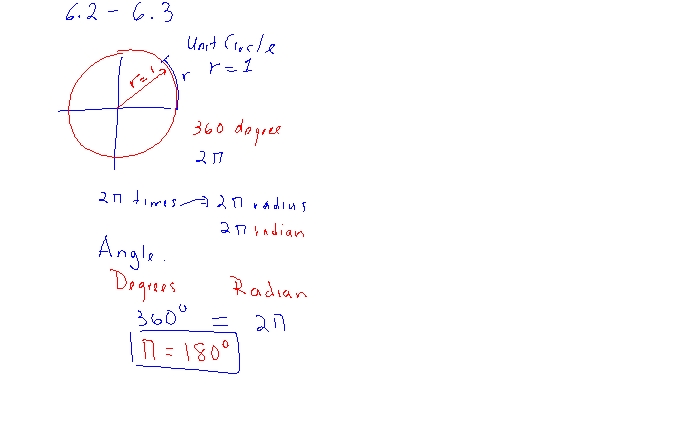 6.2 - 6.3
Unit Circle
r = 1
r = 1
r
360 degree
2π
2π times → 2π radius
2π radian
Angle.
Degrees Radian
360° = 2π
π = 180°